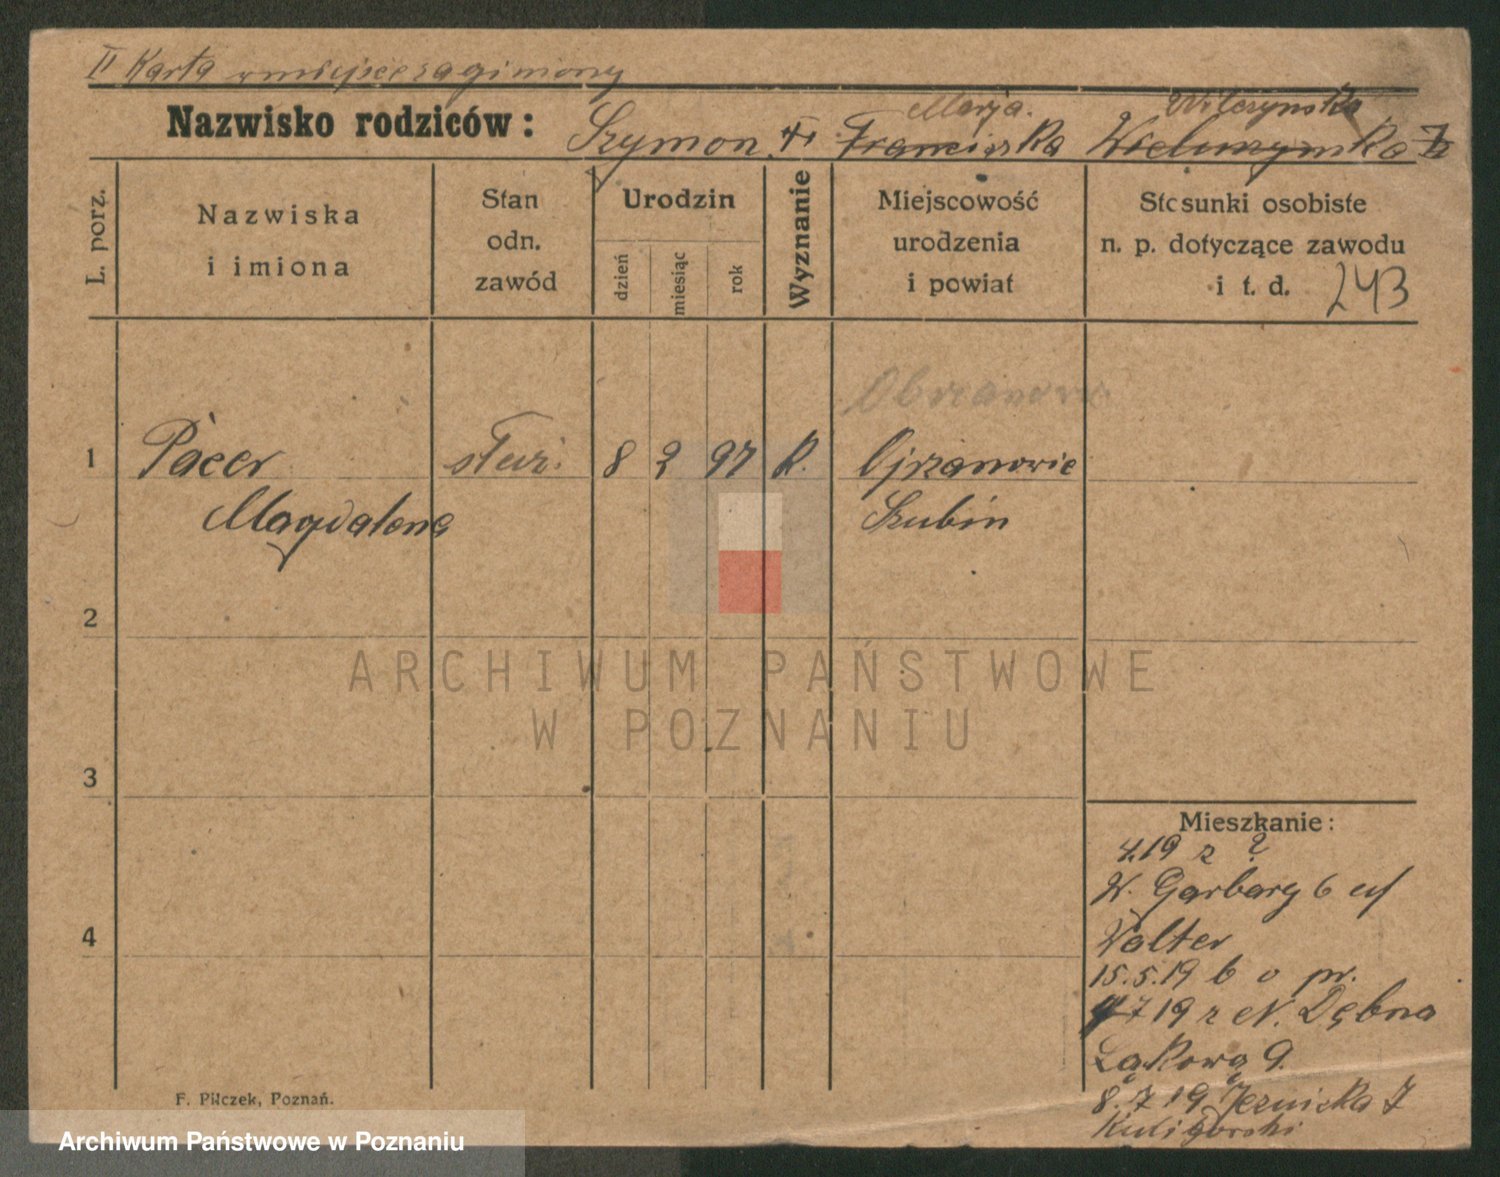 II Karta w miejsce zaginionej
Nazwisko rodziców: Szymon Franciszka Marja. Wilczynska
L. porz.
Nazwiska
i imiona
Stan
odn.
zawód
Urodzin
dzień
miesiąc
rok
Wyznanie
Miejscowość
urodzenia
i powiat
Stosunki osobiste
n. p. dotyczące zawodu
i t. d. 243
1 Pacer służ. 8 2 97 R. Ojrzanowie
Magdalena Szubin
2
3
4
Mieszkanie:
4.19 z ?
W. Garbary 6 u/
Walter
15.5.19 b o pr.
7 19 z N. Dębna
Łąkowa 9.
8.7.19. Jeznicka 7
Kuligorski
F. Pilczek, Poznań.
ARCHIWUM PAŃSTWOWE
W POZNANIU
Archiwum Państwowe w Poznaniu